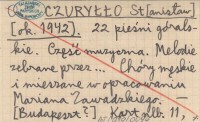 CZURYŁŁO St[anisław]
[ok. 1942]. 22 pieśni góral-
skie. Część muzyczna. Melodie
zebrane przez... Chóry męskie
i mieszane w opracowaniu
Mariana Zawadzkiego. —
[Budapeszt?] Kart 11,